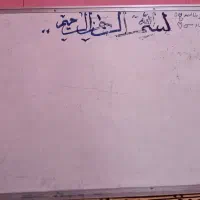 بسم الله الرحمن الرحيم ..